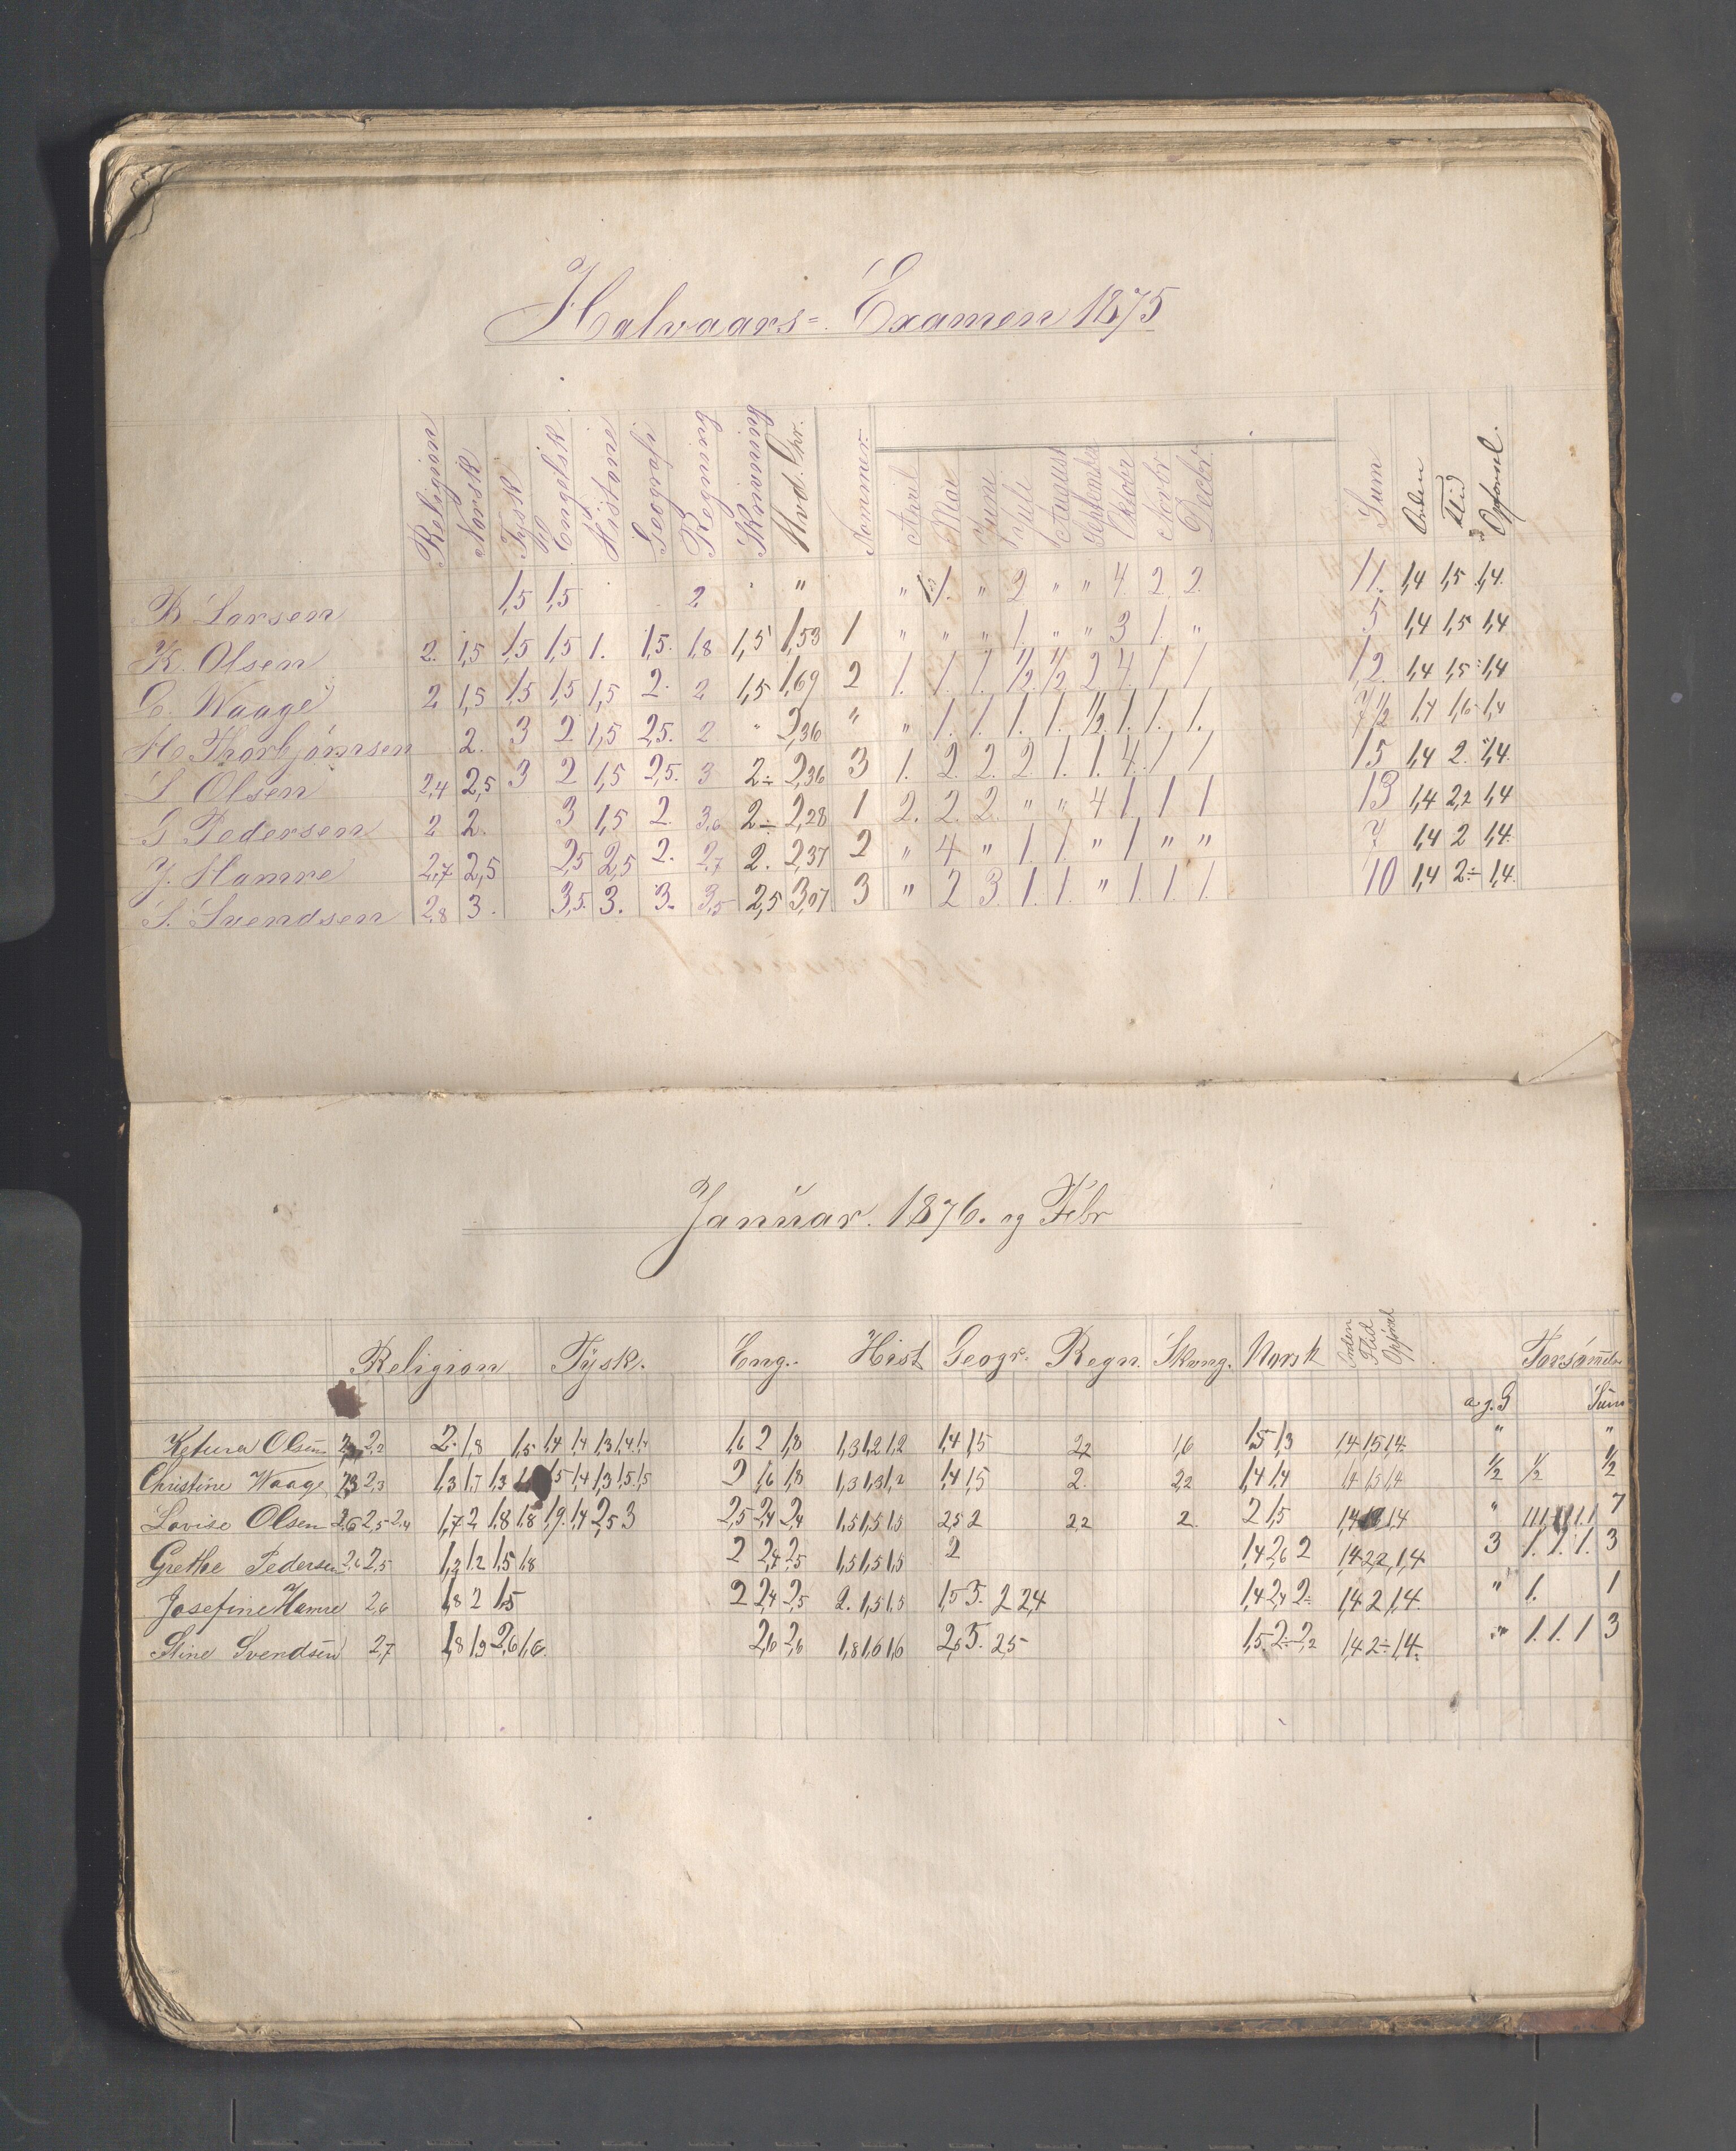 Halvaars-Examen 1875
Religion Norsk Tysk Engelsk Historie Geografi Regning Skrivning Hvd. Chr. Nommer. April Mai Juni Juli August September Oktober Novbr Decbr. Sum Orden Flid Opførsel.
K Larsen 1,5 1,5 2 " " 1. " 2 " " 4. 2. 2. 11. 1,4 1,5 1,4.
K. Olsen 2. 1,5 1,5 1,5 1. 1,5. 1,8 1,5 1,53 1 " " " 1. " " 3 1. " 5 1,4 1,5 1,4
C. Waage 2 1,5 1,5 1,5 1,5 2. 2 1,5 1,69 2 1. 1. 1. 1/2 1/2 2 4. 1 1 12. 1,4 1,5 1,4
H. Thorbjørnsen 2. 3 2 1,5 2,5. 2 " 2,36 " " 1. 1. 1. 1. 1/2 1. 1. 1. 7 1/2 1,4 1,6 1,4
L Olsen 2,4 2,5 3 2 1,5 2,5. 3 2÷ 2,36 3 1. 2. 2. 2. 1. 1. 4. 1 1 15 1,4 2. 1,4.
G Pedersen 2 2. 3 1,5 2. 3,6 2÷ 2,28 1 2. 2. 2. " " 4 1 1 1 13 1,4 2,2 1,4
J. Hamre 2,7 2,5 2,5 2,5 2. 2,7 2. 2,37 2 " 4 " 1. 1. " 1 " " 7 1,4 2 1,4.
S. Svendsen 2,8 3. 3,5. 3. 3. 3,5 2,5 3,07 3 " 2 3. 1. 1. " 1. 1. 1. 10 1,4 2÷ 1,4.
Januar. 1876. og Febr
Religion Tysk. Eng. Hist Geogr. Regn. Skrvng. Norsk Orden Flid Opførsel Forsømmelse
a. g. G Sum
Ketura Olsen 2,2 2. 1,8 1,5 1,4 1,4 1,3 1,4 1,4 1,6 2 1,8 1,3 1,2 1,2 1,4 1,5 2,2 1,6 1,5 1,3 1,4 1,5 1,4. " "
Christine Waage 2,3 1,3 1,7 1,3 1,5 1,4 1,3 1,5 1,5 2 1,6 1,8 1,3 1,3 1,2 1,4 1,5 2. 2,2 1,4 1,4 1,4 1,5 1,4 1/2 1/2 1/2
Lovise Olsen 2,6 2,5 2,4 1,7 2 1,8 1,8 1,9. 1,4 2,5 3 2,5 2,4 2,4 1,5 1,5 1,5 2,5 2 2,2 2. 2 1,5 1,4 1,4 " 7
Grethe Pedersen 2,6 2,5 1,2 1,2 1,5 1,8 2 2,4 2,5 1,5 1,5 1,5 2 1,4 2,6 2 1,4 2,2 1,4 3 1. 1. 1. 3
Josefine Hamre 2,6 1,8 2 1,5 2 2,4 2,5 2. 1,5 1,5 1,5 3. 2 2,4 1,4 2,4 2÷ 1,4 2 1,4. " 1. 1
Stine Svendsen 2,7 1,8 1,9 2,6 1,6. 2,6 2,6 1,8 1,6 1,6 2,5 3. 2,5 1,5. 2÷ 2,2 1,4 2÷ 1,4. " 1. 1. 1 3